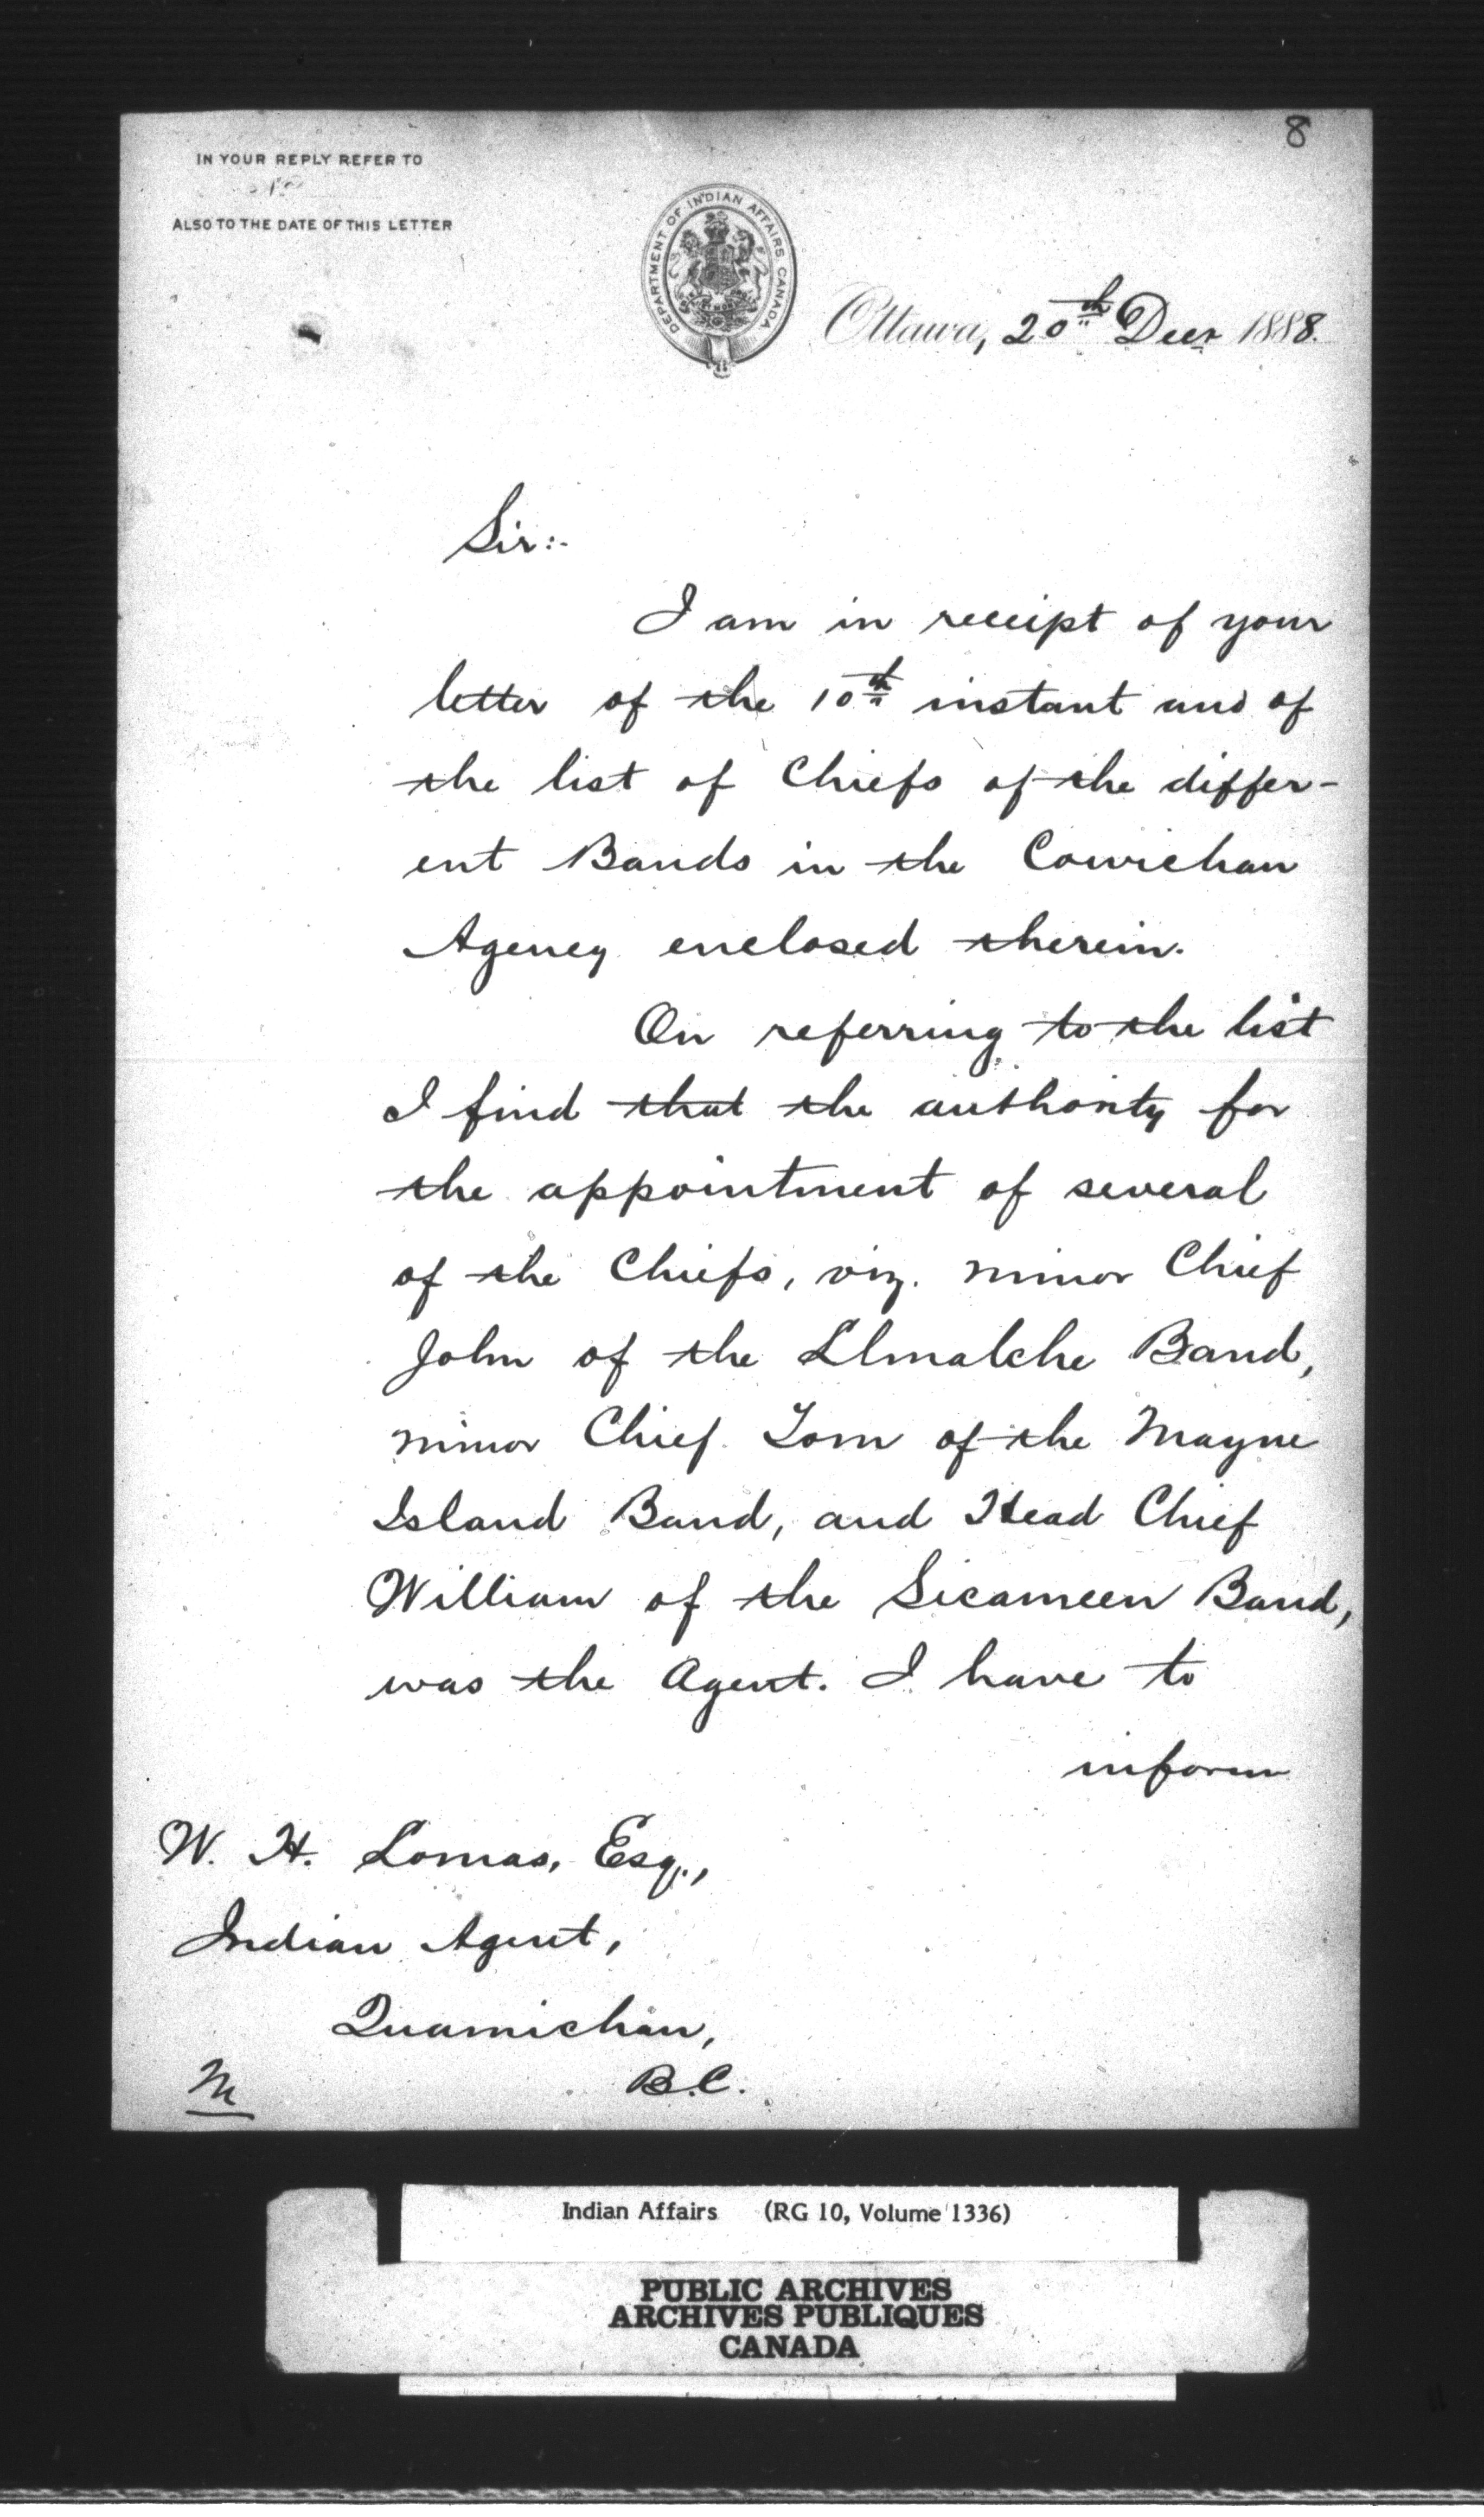 8
IN YOUR REPLY REFER TO
ALSO TO THE DATE OF THIS LETTER
DEPARTMENT OF INDIAN AFFAIRS CANADA
Ottawa, 20th Decr 1888.
Sir:-
I am in receipt of your
letter of the 10th instant and of
the list of Chiefs of the differ-
ent Bands in the Cowichan
Agency enclosed therein.
On referring to the list
I find that the authority for
the appointment of several
of the Chiefs, viz. minor Chief
John of the Llmalche Band,
minor Chief Tom of the Mayne
Island Band, and Head Chief
William of the Sicameen Band,
was the Agent. I have to
inform
W. H. Lomas, Esq.,
Indian Agent,
Quamichan,
B.C.
M
Indian Affairs (RG 10, Volume 1336)
PUBLIC ARCHIVES
ARCHIVES PUBLIQUES
CANADA